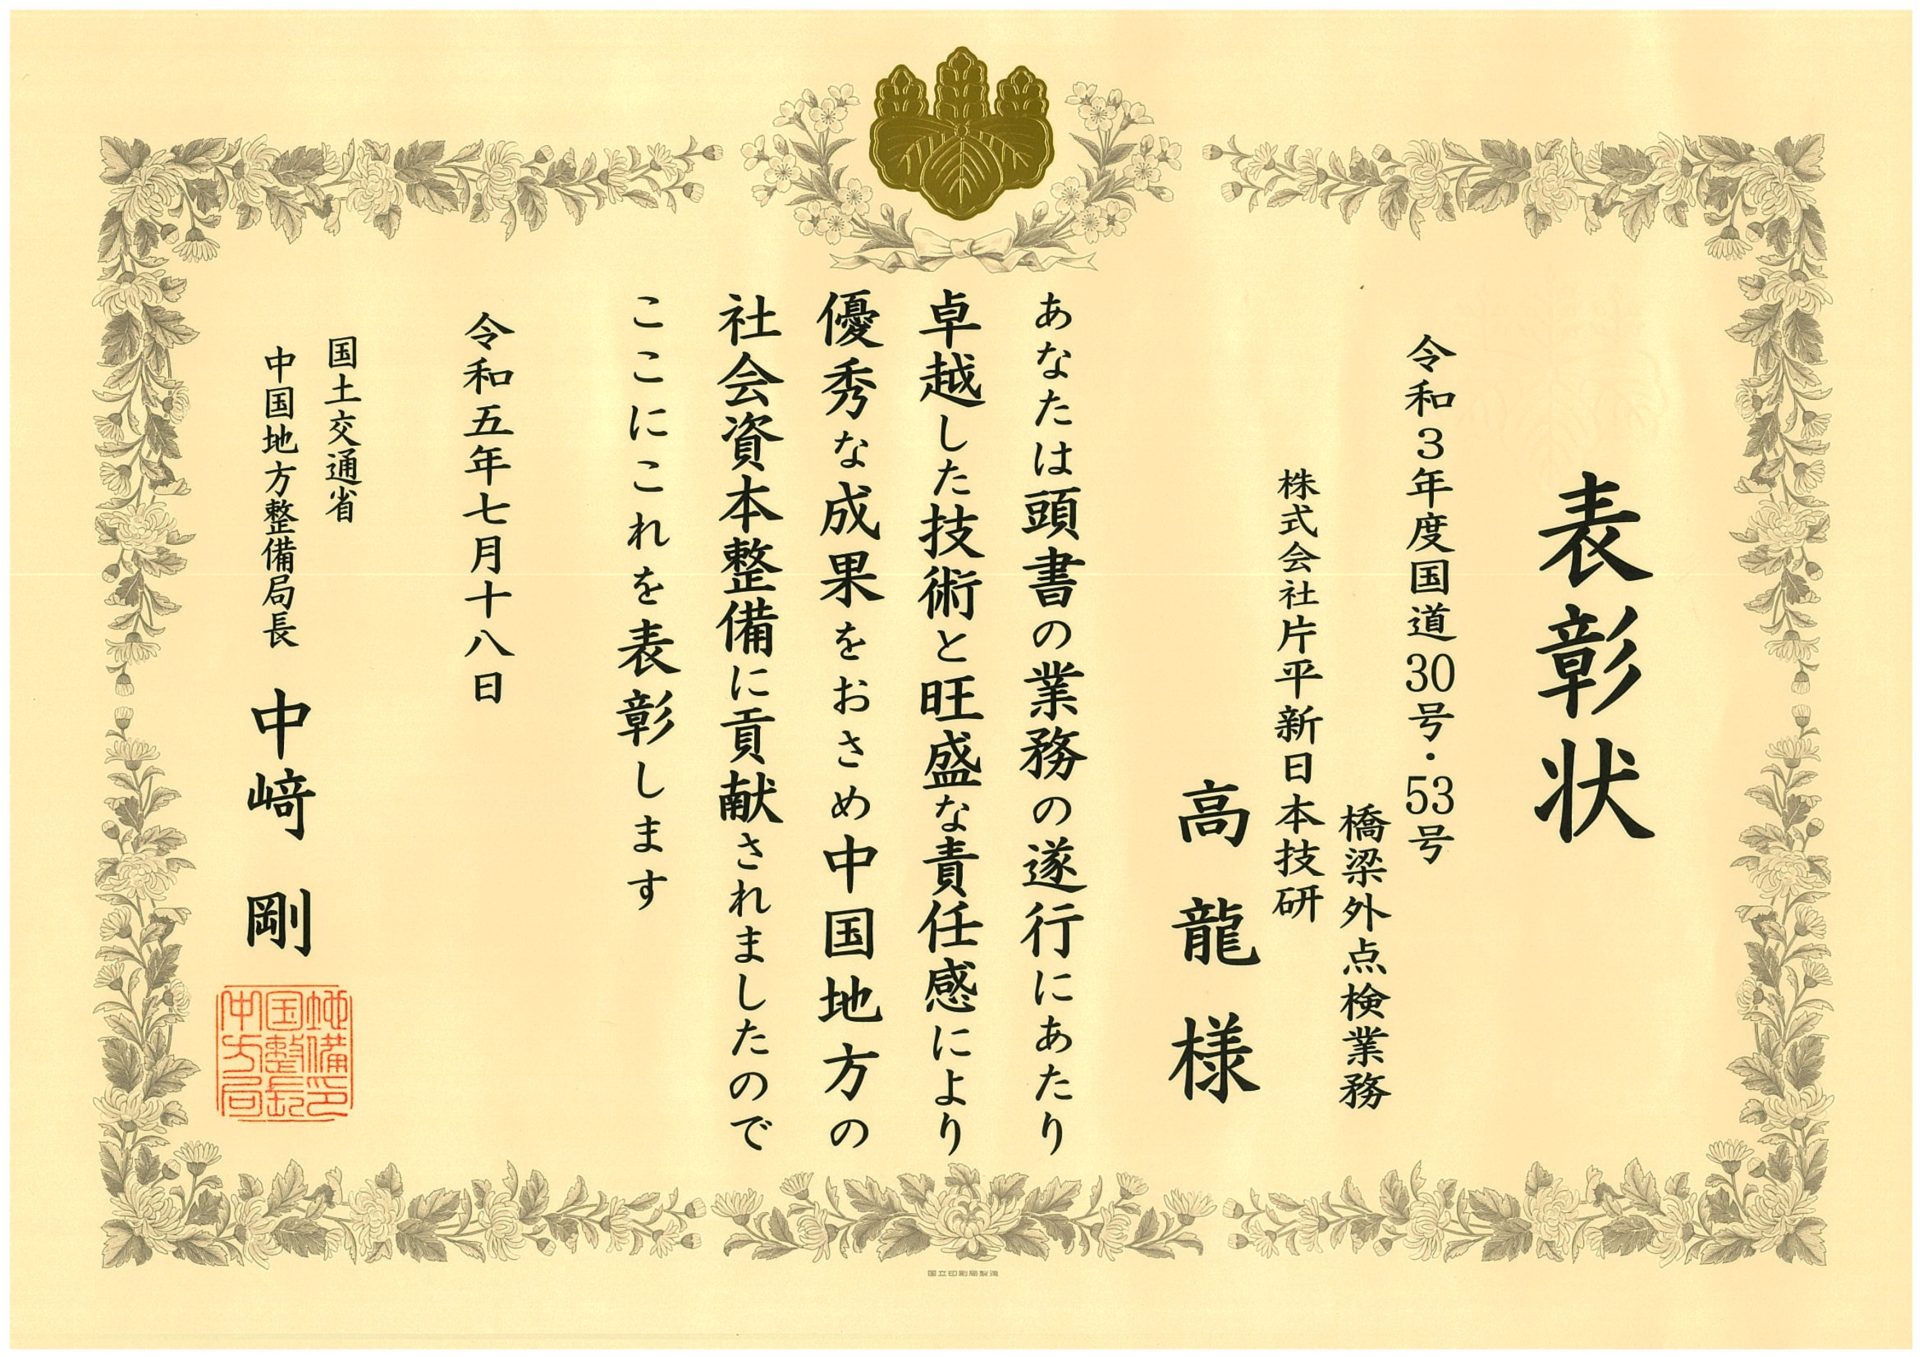 表彰状
令和３年度国道30号・53号
橋梁外点検業務
株式会社片平新日本技研
高龍様
あなたは頭書の業務の遂行にあたり
卓越した技術と旺盛な責任感により
優秀な成果をおさめ中国地方の
社会資本整備に貢献されましたので
ここにこれを表彰します
令和五年七月十八日
国土交通省
中国地方整備局長 中﨑 剛
地備印
国整長
中方局
国立印刷局製造